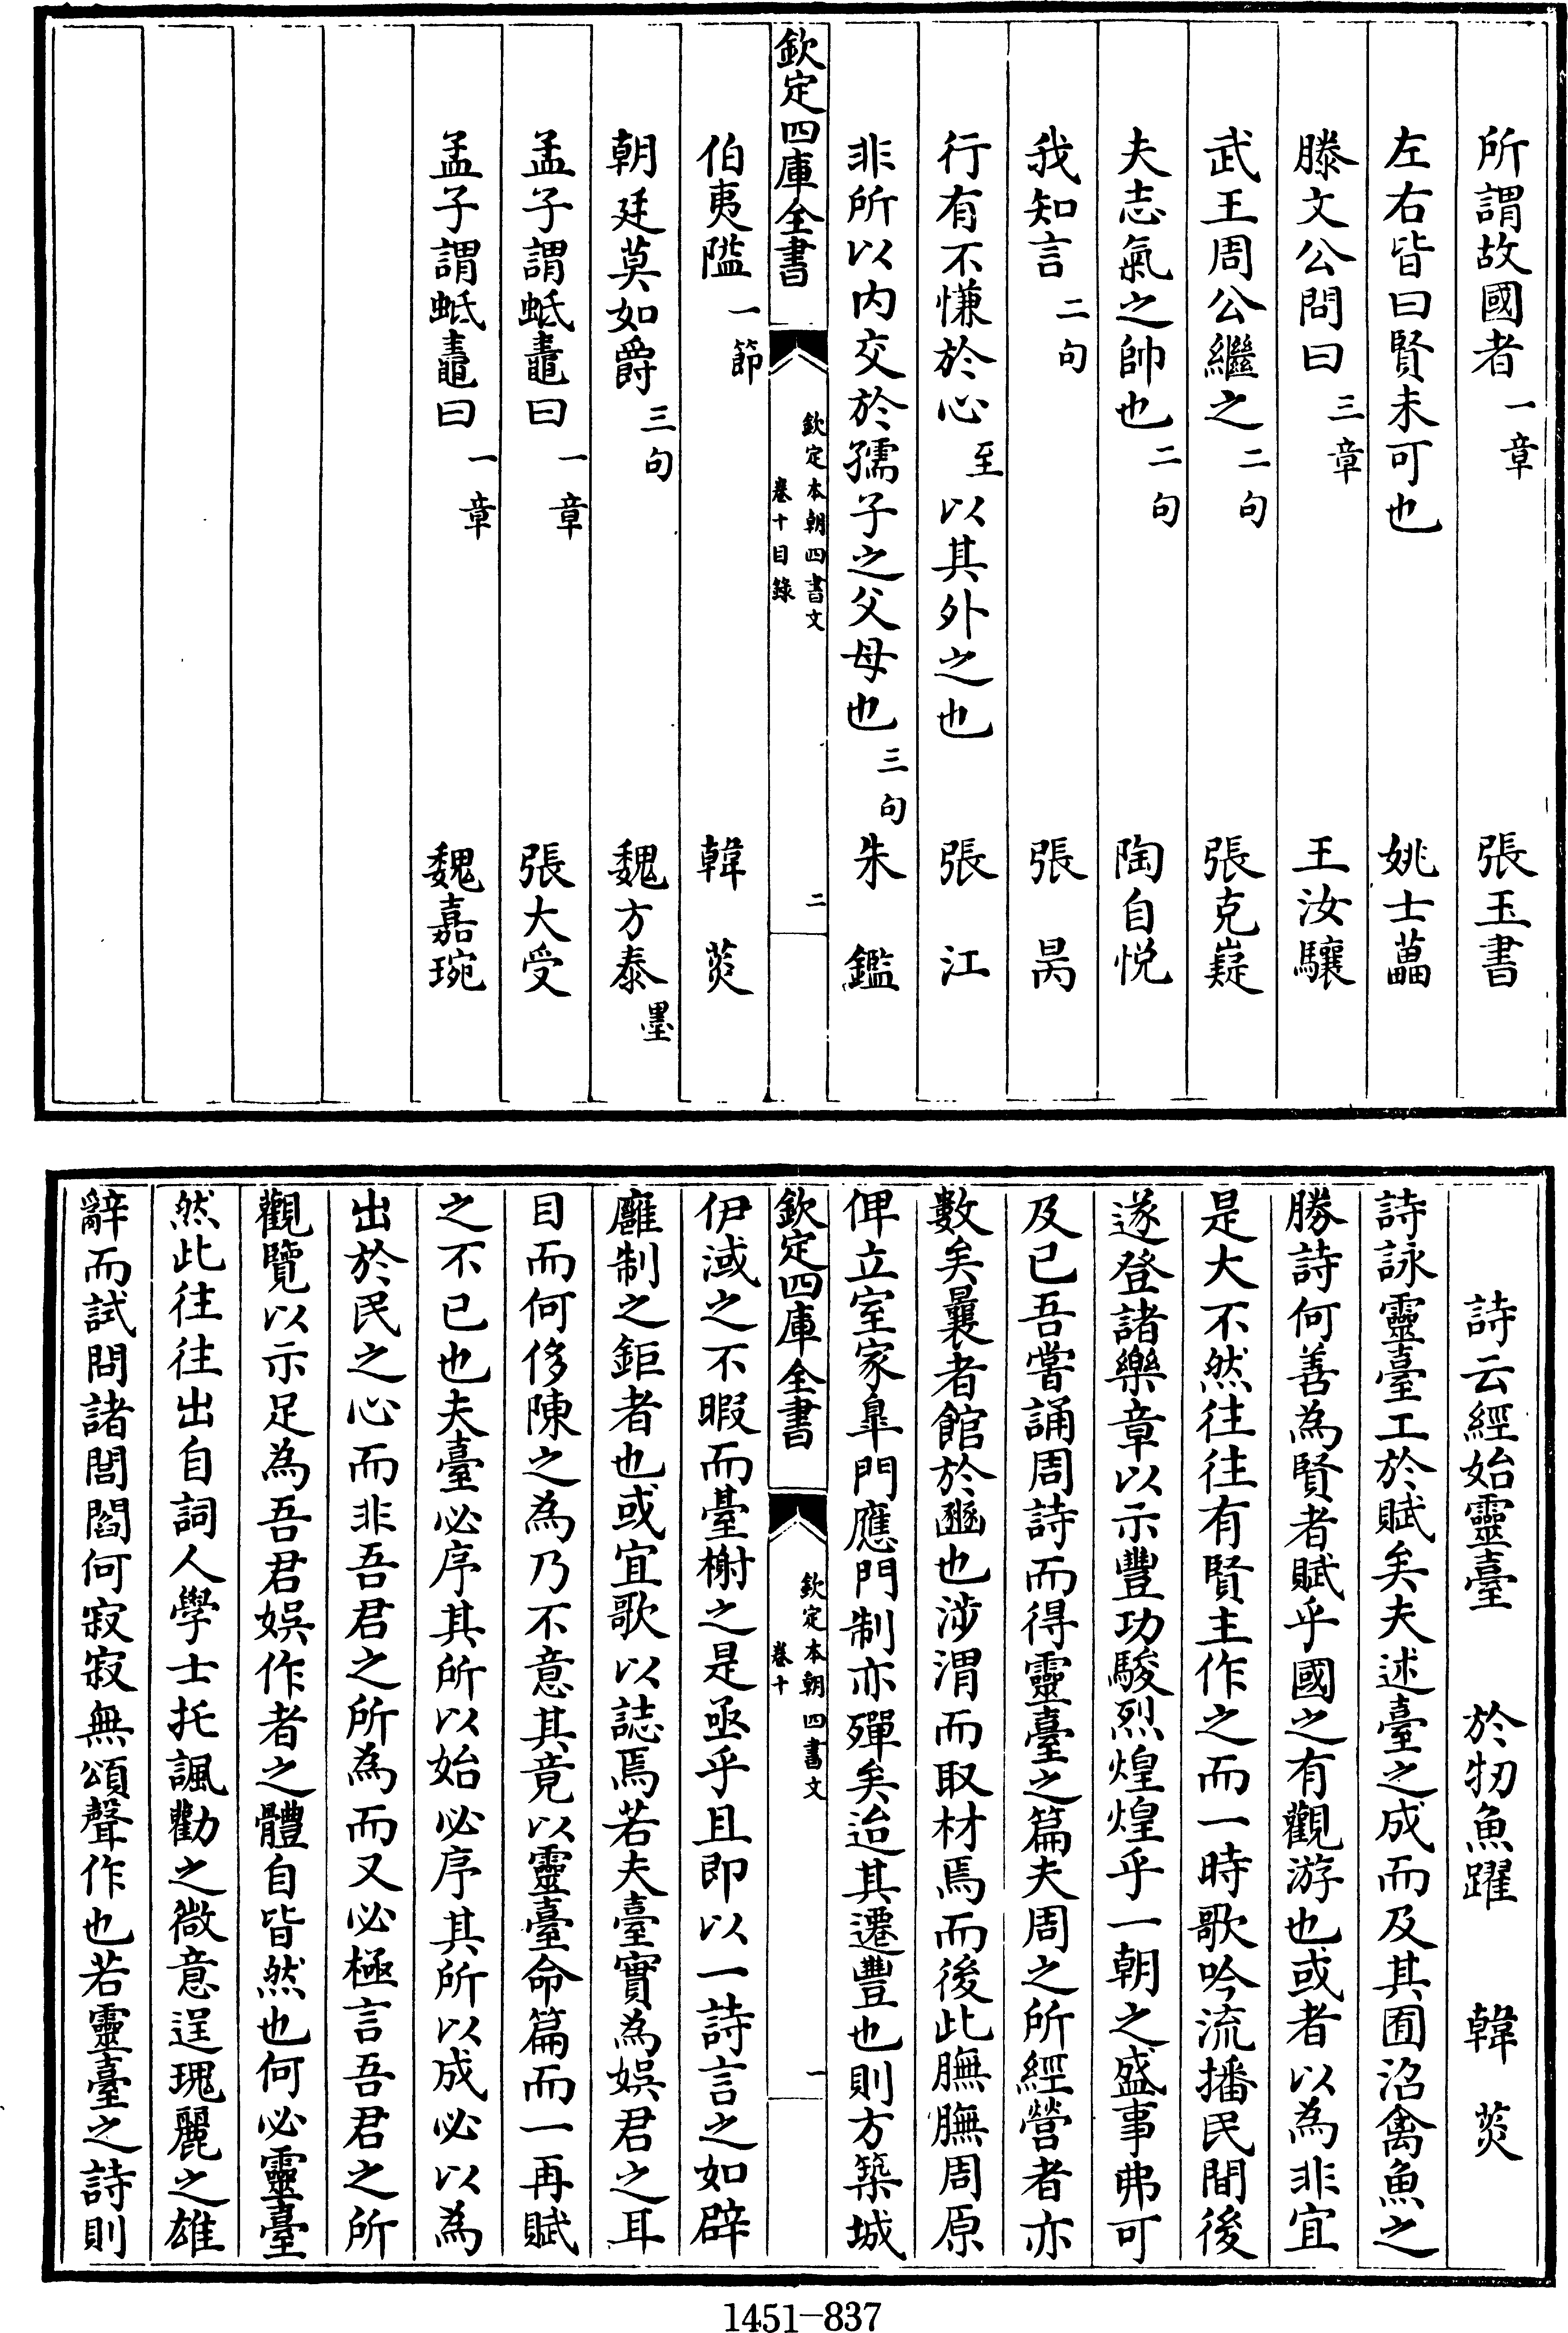 所謂故國者一章　張玉書
左右皆曰賢未可也　姚士藟
滕文公問曰三章　王汝驤
武王周公繼之二句　張克嶷
夫志氣之帥也二句　陶自悦
我知言二句　張昺
行有不慊於心至以其外之也　張江
非所以内交於孺子之父母也三句　朱鑑
欽定四庫全書　欽定本朝四書文
卷十目錄　二
伯夷隘一節　韓菼
朝廷莫如爵三句　魏方泰墨
孟子謂蚳鼃曰一章　張大受
孟子謂蚳鼃曰一章　魏嘉琬
詩云經始靈臺　於牣魚躍　韓菼
詩詠靈臺工於賦矣夫述臺之成而及其囿沼禽魚之
勝詩何善為賢者賦乎國之有觀游也或者以為非宜
是大不然往往有賢主作之而一時歌吟流播民間後
遂登諸樂章以示豐功駿烈煌煌乎一朝之盛事弗可
及已吾嘗誦周詩而得靈臺之篇夫周之所經營者亦
數矣曩者館於豳也涉渭而取材焉而後此膴膴周原
俾立室家臯門應門制亦殫矣迨其遷豐也則方築城
欽定四庫全書　欽定本朝四書文
卷十　一
伊淢之不暇而臺榭之是亟乎且即以一詩言之如辟
廱制之鉅者也或宜歌以誌焉若夫臺實為娱君之耳
目而何侈陳之為乃不意其竟以靈臺命篇而一再賦
之不已也夫臺必序其所以始必序其所以成必以為
出於民之心而非吾君之所為而又必極言吾君之所
觀覽以示足為吾君娱作者之體自皆然也何必靈臺
然此往往出自詞人學士托諷勸之微意逞瑰麗之雄
辭而試問諸閭閻何寂寂無頌聲作也若靈臺之詩則
1451-837